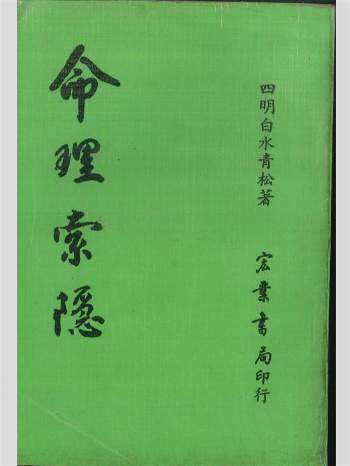 四明白水青松著
宏業書局印行
命理索隱